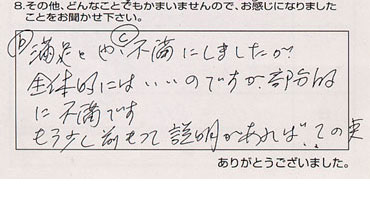 8.その他、どんなことでもかまいませんので、お感じになりました
ことをお聞かせ下さい。
Ⓑ満足とやや不満Ⓒにしましたが
全体的にはいいのですが、部分的
に不満です
もう少し前もって説明があれば、この
ありがとうございました。